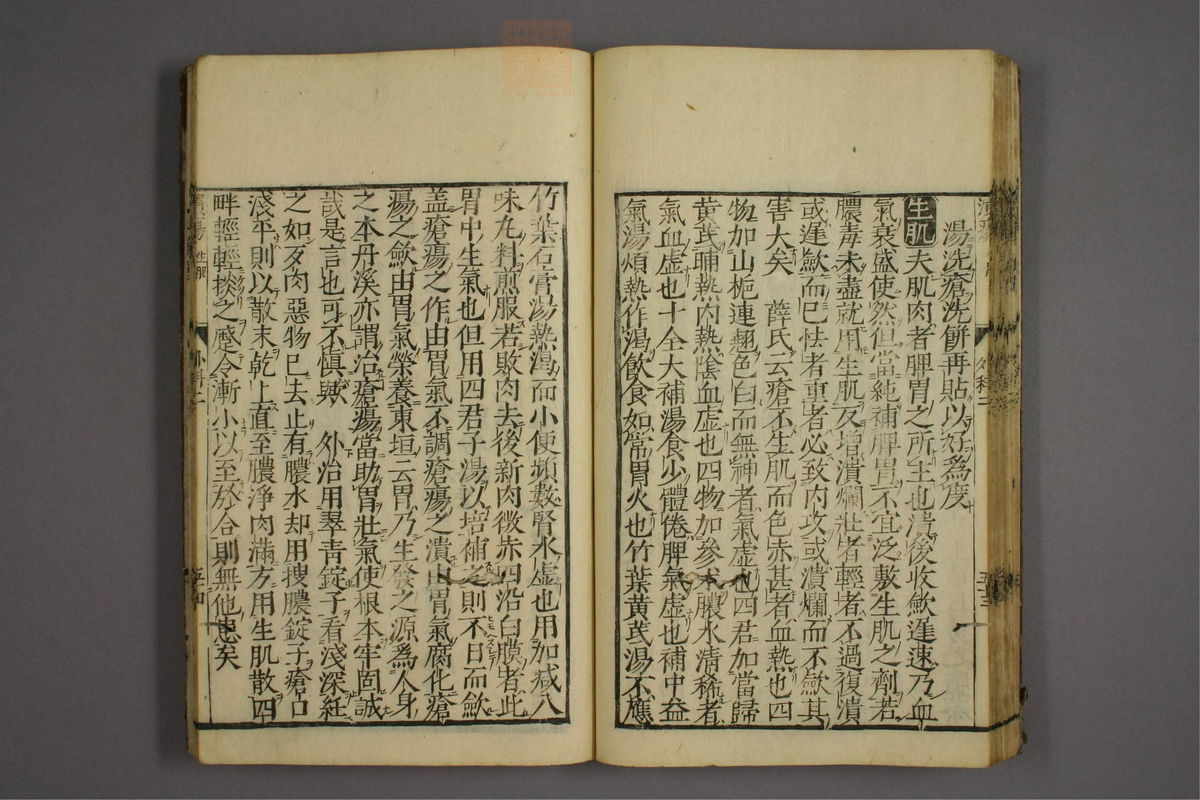 湯洗瘡洗餅再貼以好為度
生肌夫肌肉者脾胃之所主也潰後收歛遲速乃血
氣衰盛使然但當純補脾胃不宜泛敷生肌之劑若
膿毒未盡就用生肌反增潰爛壯者輕者不過復潰
或遲歛而已怯者重者必致內攻或潰爛而不歛其
害大矣　薛氏云瘡不生肌而色赤甚者血熱也四
物加山梔連翹色白而無神者氣虛也四君加當歸
黃芪晡熱內熱陰血虛也四物加參朮膿水清稀者
氣血虛也十全大補湯食少體倦脾氣虛也補中益
氣湯煩熱作渴飲食如常胃火也竹葉黃芪湯不應
竹葉石膏湯熱渴而小便頻數腎水虛也用加減八
味丸料煎服若敗肉去後新肉微赤四沿白膜者此
胃中生氣也但用四君子湯以培補之則不日而歛
盖瘡瘍之作由胃氣不調瘡瘍之潰由胃氣腐化瘡
瘍之歛由胃氣榮養東垣云胃乃生發之源為人身
之本丹溪亦謂治瘡瘍當助胃壯氣使根本牢固誠
哉是言也可不慎歟　外治用翠青錠子看淺深紝
之如歹肉惡物已去止有膿水却用搜膿錠子瘡口
淺平則以散末乾上直至膿淨肉滿方用生肌散四
畔輕輕掞之歷令漸小以至於合則無他患矣
外科二
五十三
外科二
五十四